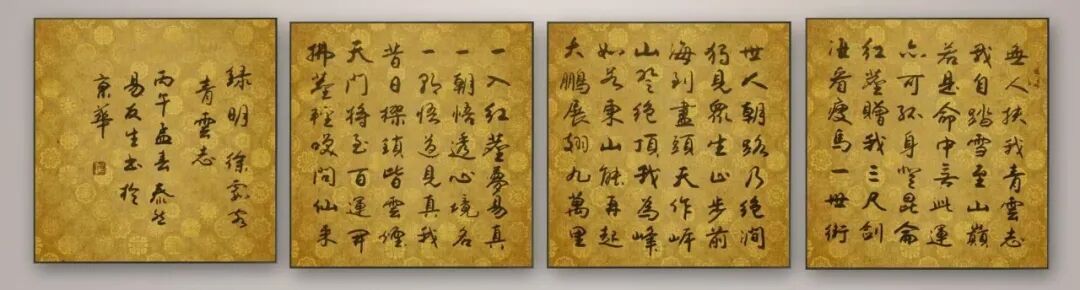 無人扶我青雲志
我自踏雪至山巔
若是命中無此運
亦可孤身登昆侖
紅塵贈我三尺劍
酒肴瘦馬一世街
世人朝路乃絕澗
獨見眾生止步前
海到盡頭天作岸
山登絕頂我為峰
如若東山能再起
大鵬展翅九萬里
一入紅塵夢易真
一朝悟透心境名
一朝悟道見真我
昔日鎖皆雲煙
天門將至百運開
拂塵輕嘆問仙來
錄明 徐霞客
青雲志
丙午孟春 泰然
易友生書於
京華